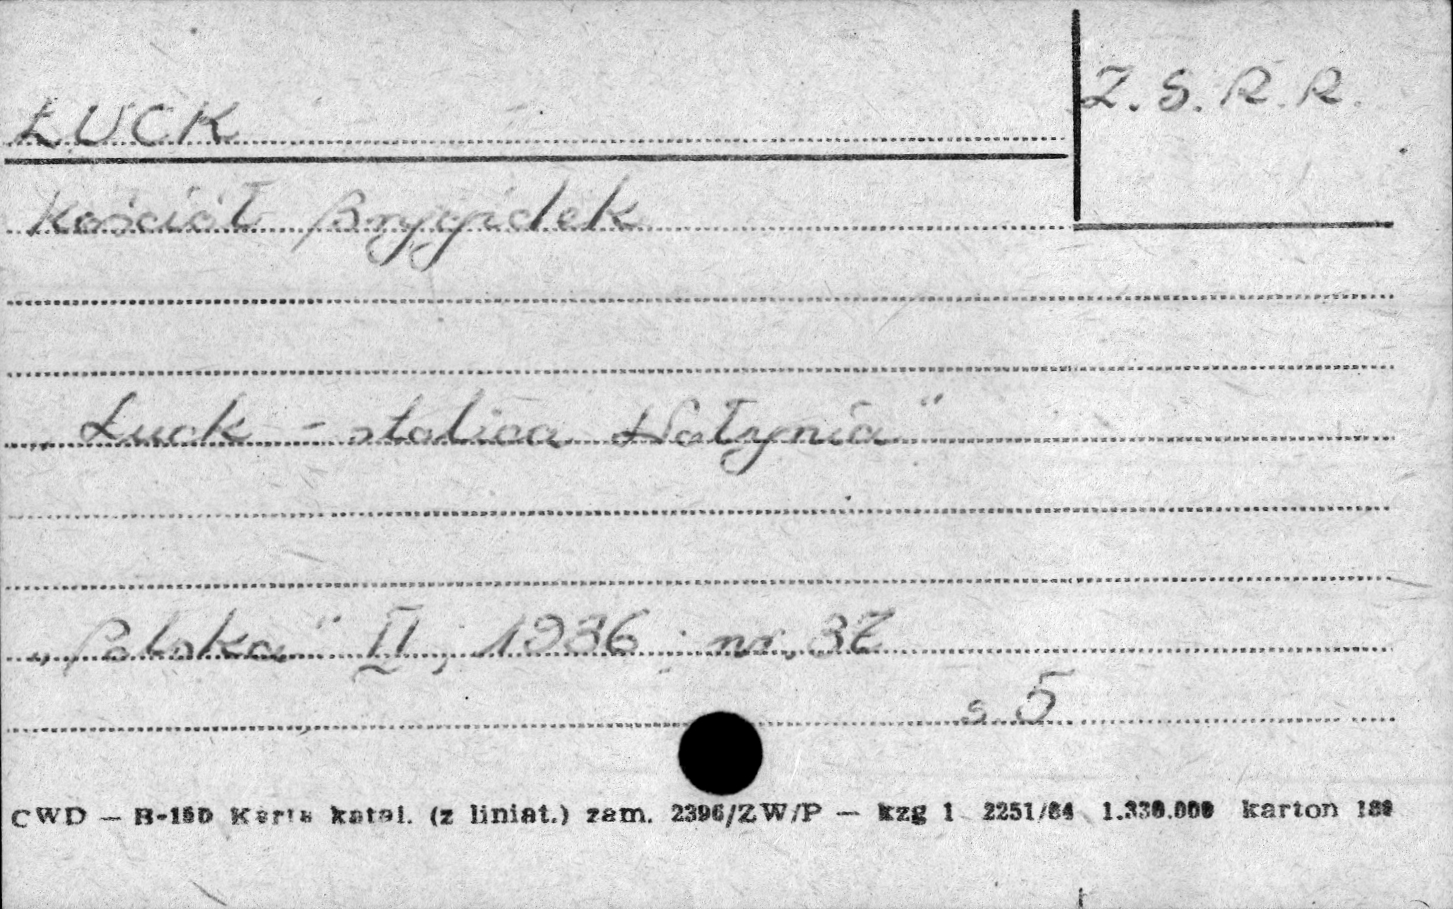 ŁUCK
Z.S.R.R.
Kościół Brygidek
„Łuck - stolica Wołynia"
„Polska" II, 1936, nr. 37
s. 5
CWD — B-150 Karta katal. (z liniat.) zam. 2396/ZW/P — kzg 1 2251/84 1.330.000 karton